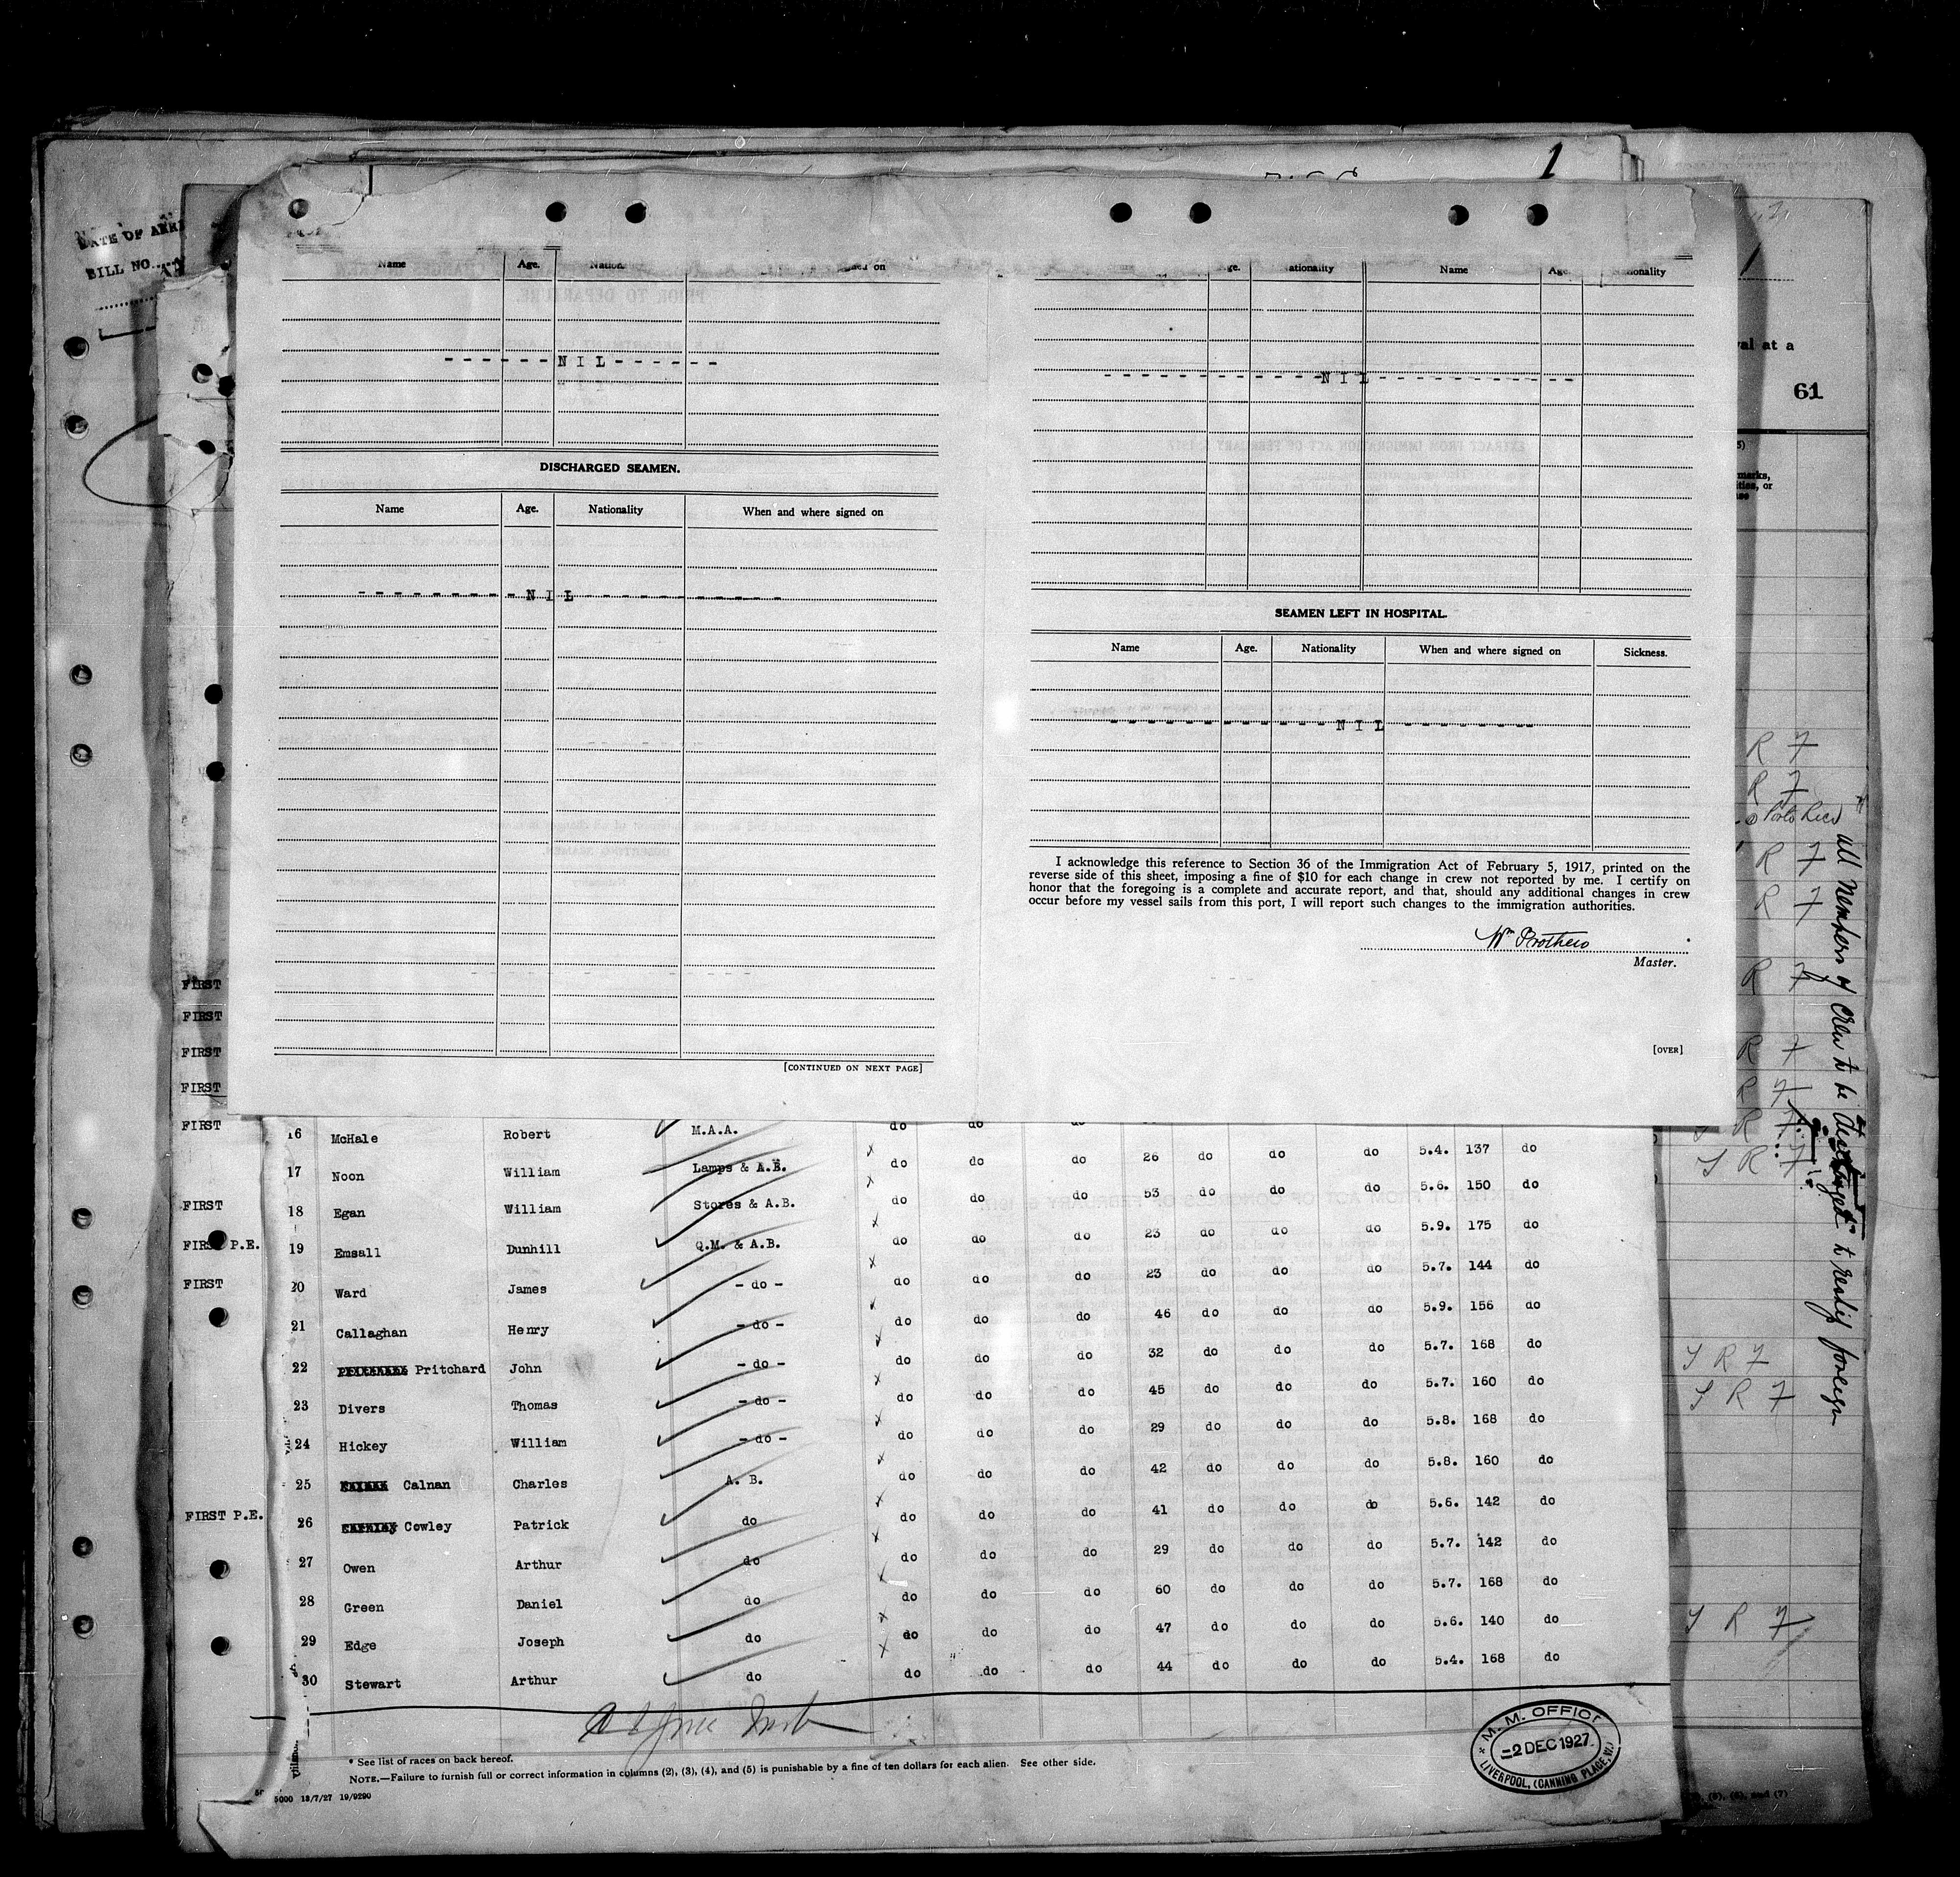 1
DATE OF
BILL NO.
Name Age.
on
Name
DISCHARGED SEAMEN.
Name Age. Nationality When and where signed on
------NIL------
---------NIL-----------
[CONTINUED ON NEXT PAGE]
------------NIL-----------
SEAMEN LEFT IN HOSPITAL.
Name Age. Nationality When and where signed on Sickness.
-------------NIL---------
I acknowledge this reference to Section 36 of the Immigration Act of February 5, 1917, printed on the
reverse side of this sheet, imposing a fine of $10 for each change in crew not reported by me. I certify on
honor that the foregoing is a complete and accurate report, and that, should any additional changes in crew
occur before my vessel sails from this port, I will report such changes to the immigration authorities.
Wm Prothero
Master.
[OVER]
at a
61
FIRST
FIRST
FIRST
FIRST
FIRST 16 McHale Robert M.A.A. do do
17 Noon William Lamps & A.B. do do do 26 do do do 5.4. 137 do
FIRST 18 Egan William Stores & A.B. do do do 53 do do do 5.6. 150 do
FIRST P.E. 19 Emsall Dunhill Q.M. & A.B. do do do 23 do do do 5.9. 175 do
FIRST 20 Ward James - do - do do do 23 do do do 5.7. 144 do
21 Callaghan Henry - do - do do do 46 do do do 5.9. 156 do
22 Pritchard John - do - do do do 32 do do do 5.7. 168 do
23 Divers Thomas - do - do do do 45 do do do 5.7. 160 do
24 Hickey William - do - do do do 29 do do do 5.8. 168 do
25 Calnan Charles A. B. do do do 42 do do do 5.8. 160 do
FIRST P.E. 26 Cowley Patrick do do do do 41 do do do 5.6. 142 do
27 Owen Arthur do do do do 29 do do do 5.7. 142 do
28 Green Daniel do do do do 60 do do do 5.7. 168 do
29 Edge Joseph do do do do 47 do do do 5.6. 140 do
30 Stewart Arthur do do do do 44 do do do 5.4. 168 do
* See list of races on back hereof.
NOTE.—Failure to furnish full or correct information in columns (2), (3), (4), and (5) is punishable by a fine of ten dollars for each alien. See other side.
5000 18/7/27 19/9290
M. M. OFFICE
-2 DEC 1927
LIVERPOOL, (CANNING PLACE, W.)
R 7
R 7
Porto Rico
R 7
R 7
R 7
R 7
R 7
S R 7
S R 7
S R 7
S R 7
S R 7
all members of crew to be
to reship foreign